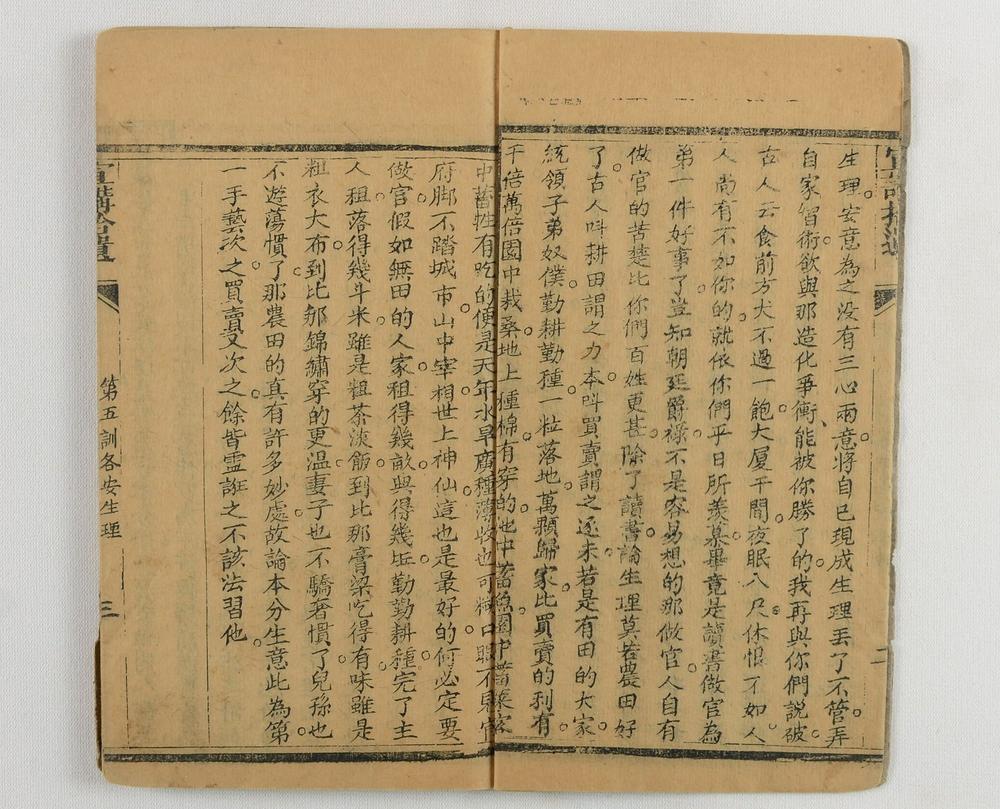 生理安意為之没有三心兩意將自已現成生理丟了不管弄
自家智術欲與那造化爭衡能被你勝了的我再與你們說破
古人云食前方犬不過一飽大厦千間夜眠八尺休恨不如人
人尚有不如你的就依你們平日所羨慕畢竟是讀書做官為
第一件好事了豈知朝廷爵祿不是容易想的那做官人自有
做官的苦楚比你們百姓更甚除了讀書論生理莫若農田好
了古人呌耕田謂之力本呌買賣謂之逐末若是有田的大家
統領子弟奴僕勤耕勤種一粒落地萬顆歸家比買賣的利有
千倍萬倍園中栽桑地上種棉有穿的也中蓄魚園中昔菜家
中畜牲有吃的便是天年水旱廣種薄收也可糊口眼不見官
府脚不踏城市山中宰相世上神仙這也是最好的何必定要
做官假如無田的人家租得幾畝與得幾坵勤勤耕種完了主
人租落得幾斗米雖是粗茶淡飯到比那膏梁吃得有味雖是
粗衣大布到比那錦繡穿的更溫妻子也不驕奢慣了兒孫也
不遊蕩慣了那農田的真有許多妙處故論本分生意此為第
一手藝次之買賣又次之餘皆虛誑之不該法習他
宣講拾遺
第五訓各安生理
三